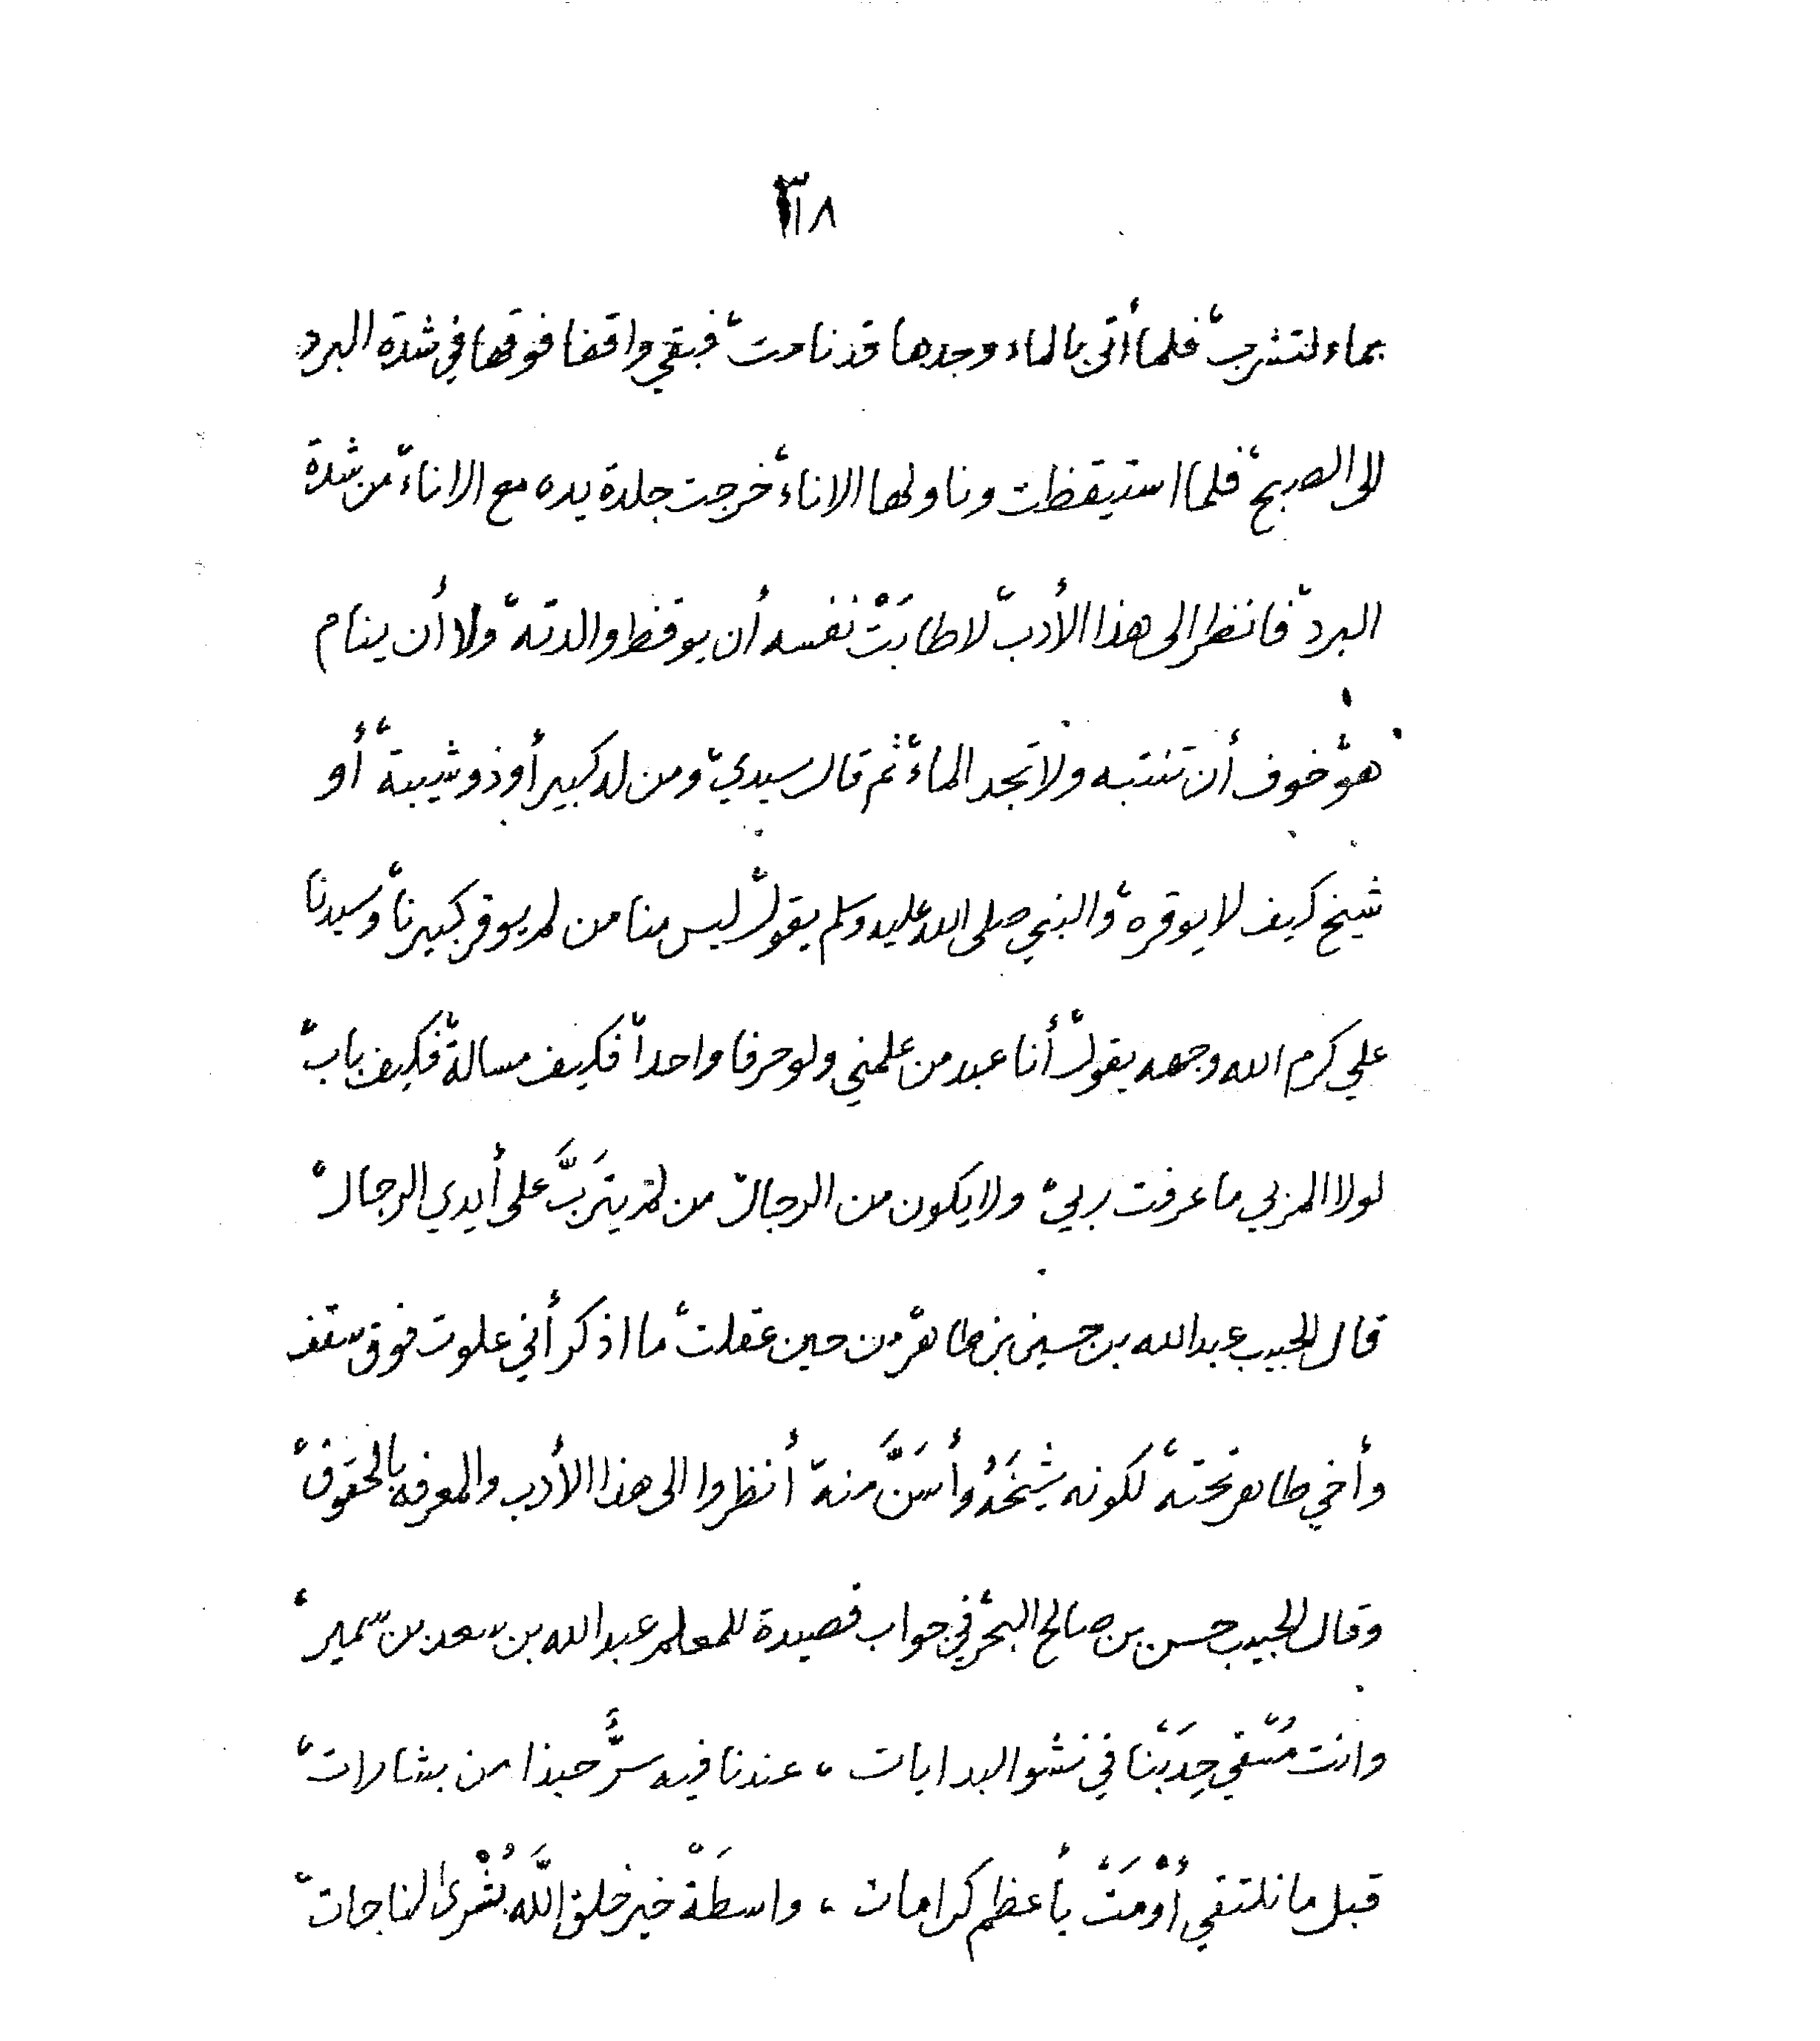 ٣١٨
بماء لتشرب، فلما أتى بالماء وجدها قد نامت، فبقي واقفا فوقها في شدة البرد
الى الصبح، فلما استيقظت وناولها الاناء، خرجت جلدة يده مع الاناء، من شدة
البرد، فانظر الى هذا الأدب، لا طابَتْ نفسه أن يوقظ والدته، ولا أن ينام
هو، خوف أن تنتبه ولا تجد الماء، ثم قال سيدي، ومن له كبير أو ذو شيبة، أو
شيخ كيف لا يوقره، والنبي صلى الله عليه وسلم يقول، ليس منا من لم يوقر كبيرنا، وسيدنا
علي كرم الله وجهه يقول، أنا عبد من علمني ولو حرفا واحدا، فكيف مسالة، فكيف باب،
لولا المربي ما عرفت ربي، ولا يكون من الرجال، من لم يترَبَّ على أيدي الرجال،
قال الحبيب عبد الله بن حسين بن طاهر، من حين عقلت، ما اذكر أني علوت فوق سقف
وأخي طاهر تحته، لكونه شيخَهُ وأسَنَّ منه، أنظروا الى هذا الأدب والمعرفه بالحقوق،
وقال الحبيب حسن بن صالح البحر، في جواب قصيدة للمعلم عبد الله بن سعد بن سمير،
وانت في نشو البدايات، عندنا فيه سرٌّ حبذا من بشارات،
قبل ما نلتقي بأعظم كرامات، واسطَةْ خير خلق اللَّه